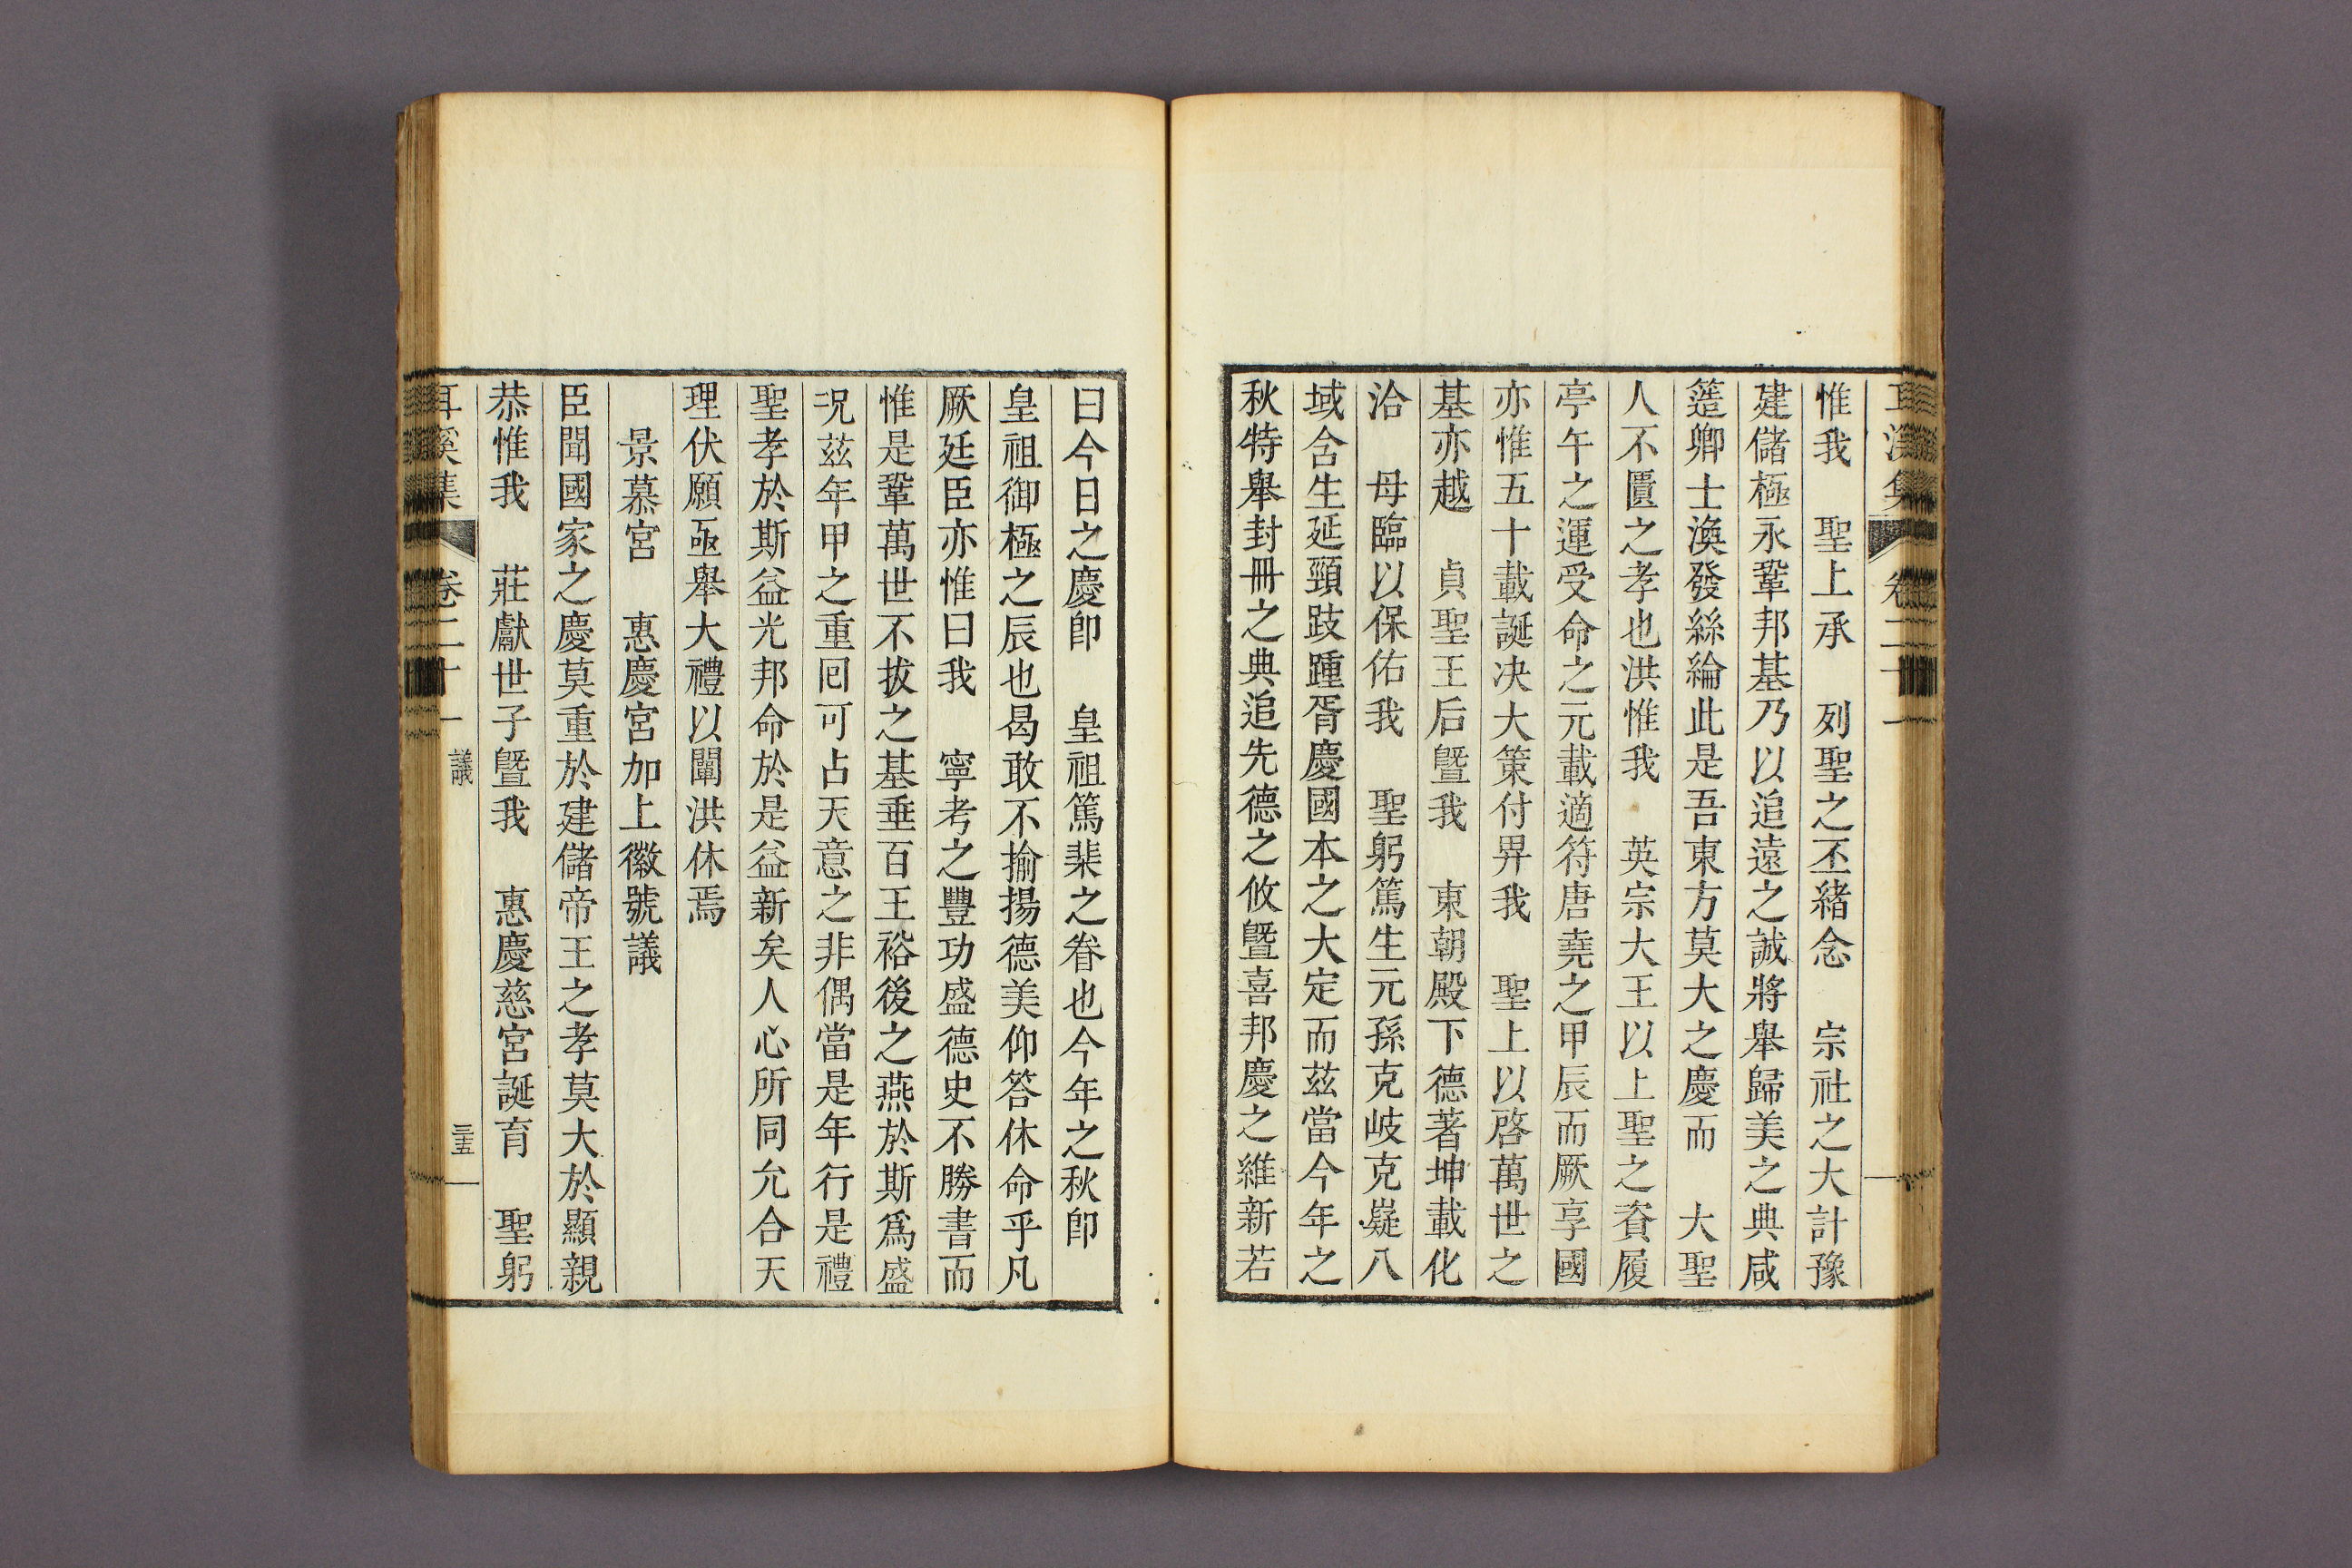 惟我　聖上承　列聖之丕緖念　宗社之大計豫
建儲極永鞏邦基乃以追遠之誠將舉歸美之典咸
簉卿士渙發絲綸此是吾東方莫大之慶而　大聖
人不匱之孝也洪惟我　英宗大王以上聖之資履
亭午之運受命之元載適符唐堯之甲辰而厥享國
亦惟五十載誕決大策付畀我　聖上以啓萬世之
基亦越　貞聖王后曁我　東朝殿下德著坤載化
洽　母臨以保佑我　聖躬篤生元孫克岐克嶷八
域含生延頸跂踵胥慶國本之大定而茲當今年之
秋特舉封冊之典追先德之攸曁喜邦慶之維新若
曰今日之慶卽　皇祖篤棐之眷也今年之秋卽
皇祖御極之辰也曷敢不揄揚德美仰答休命乎凡
厥廷臣亦惟曰我　寧考之豐功盛德史不勝書而
惟是鞏萬世不拔之基垂百王裕後之燕於斯爲盛
況茲年甲之重回可占天意之非偶當是年行是禮
聖孝於斯益光邦命於是益新矣人心所同允合天
理伏願亟舉大禮以闡洪休焉
景慕宮　惠慶宮加上徽號議
臣聞國家之慶莫重於建儲帝王之孝莫大於顯親
恭惟我　莊獻世子曁我　惠慶慈宮誕育　聖躬
耳溪集　卷二十一　議　三五